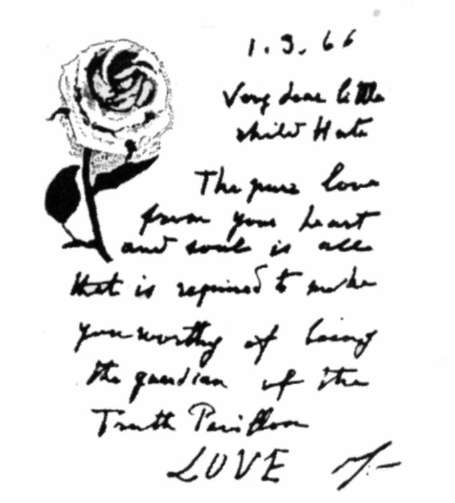 1.3.66
Very dear little
child Huta
The pure love
from your heart
and soul is all
that is required to make
you worthy of being
the guardian of the
Truth Pavillon
LOVE